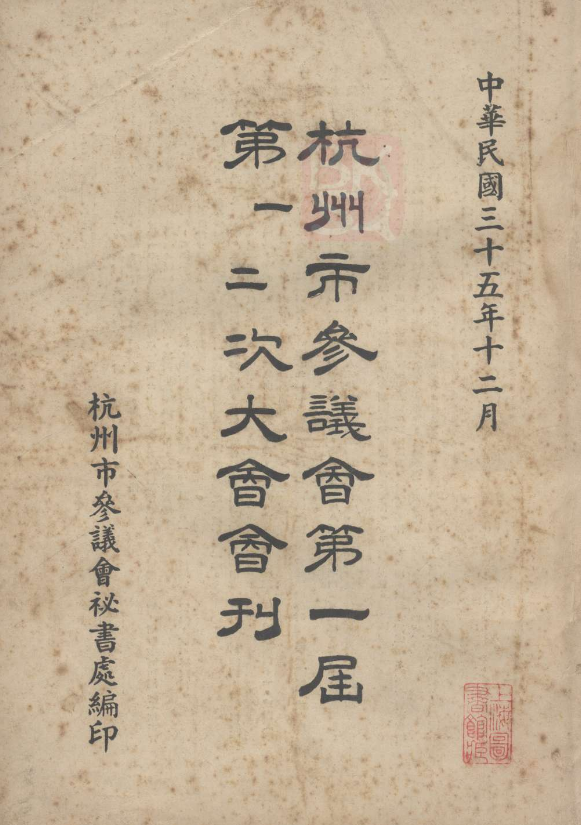 中華民國三十五年十二月
杭州市參議會第一屆
第一二次大會會刊
杭州市參議會祕書處編印
上海圖
書館藏